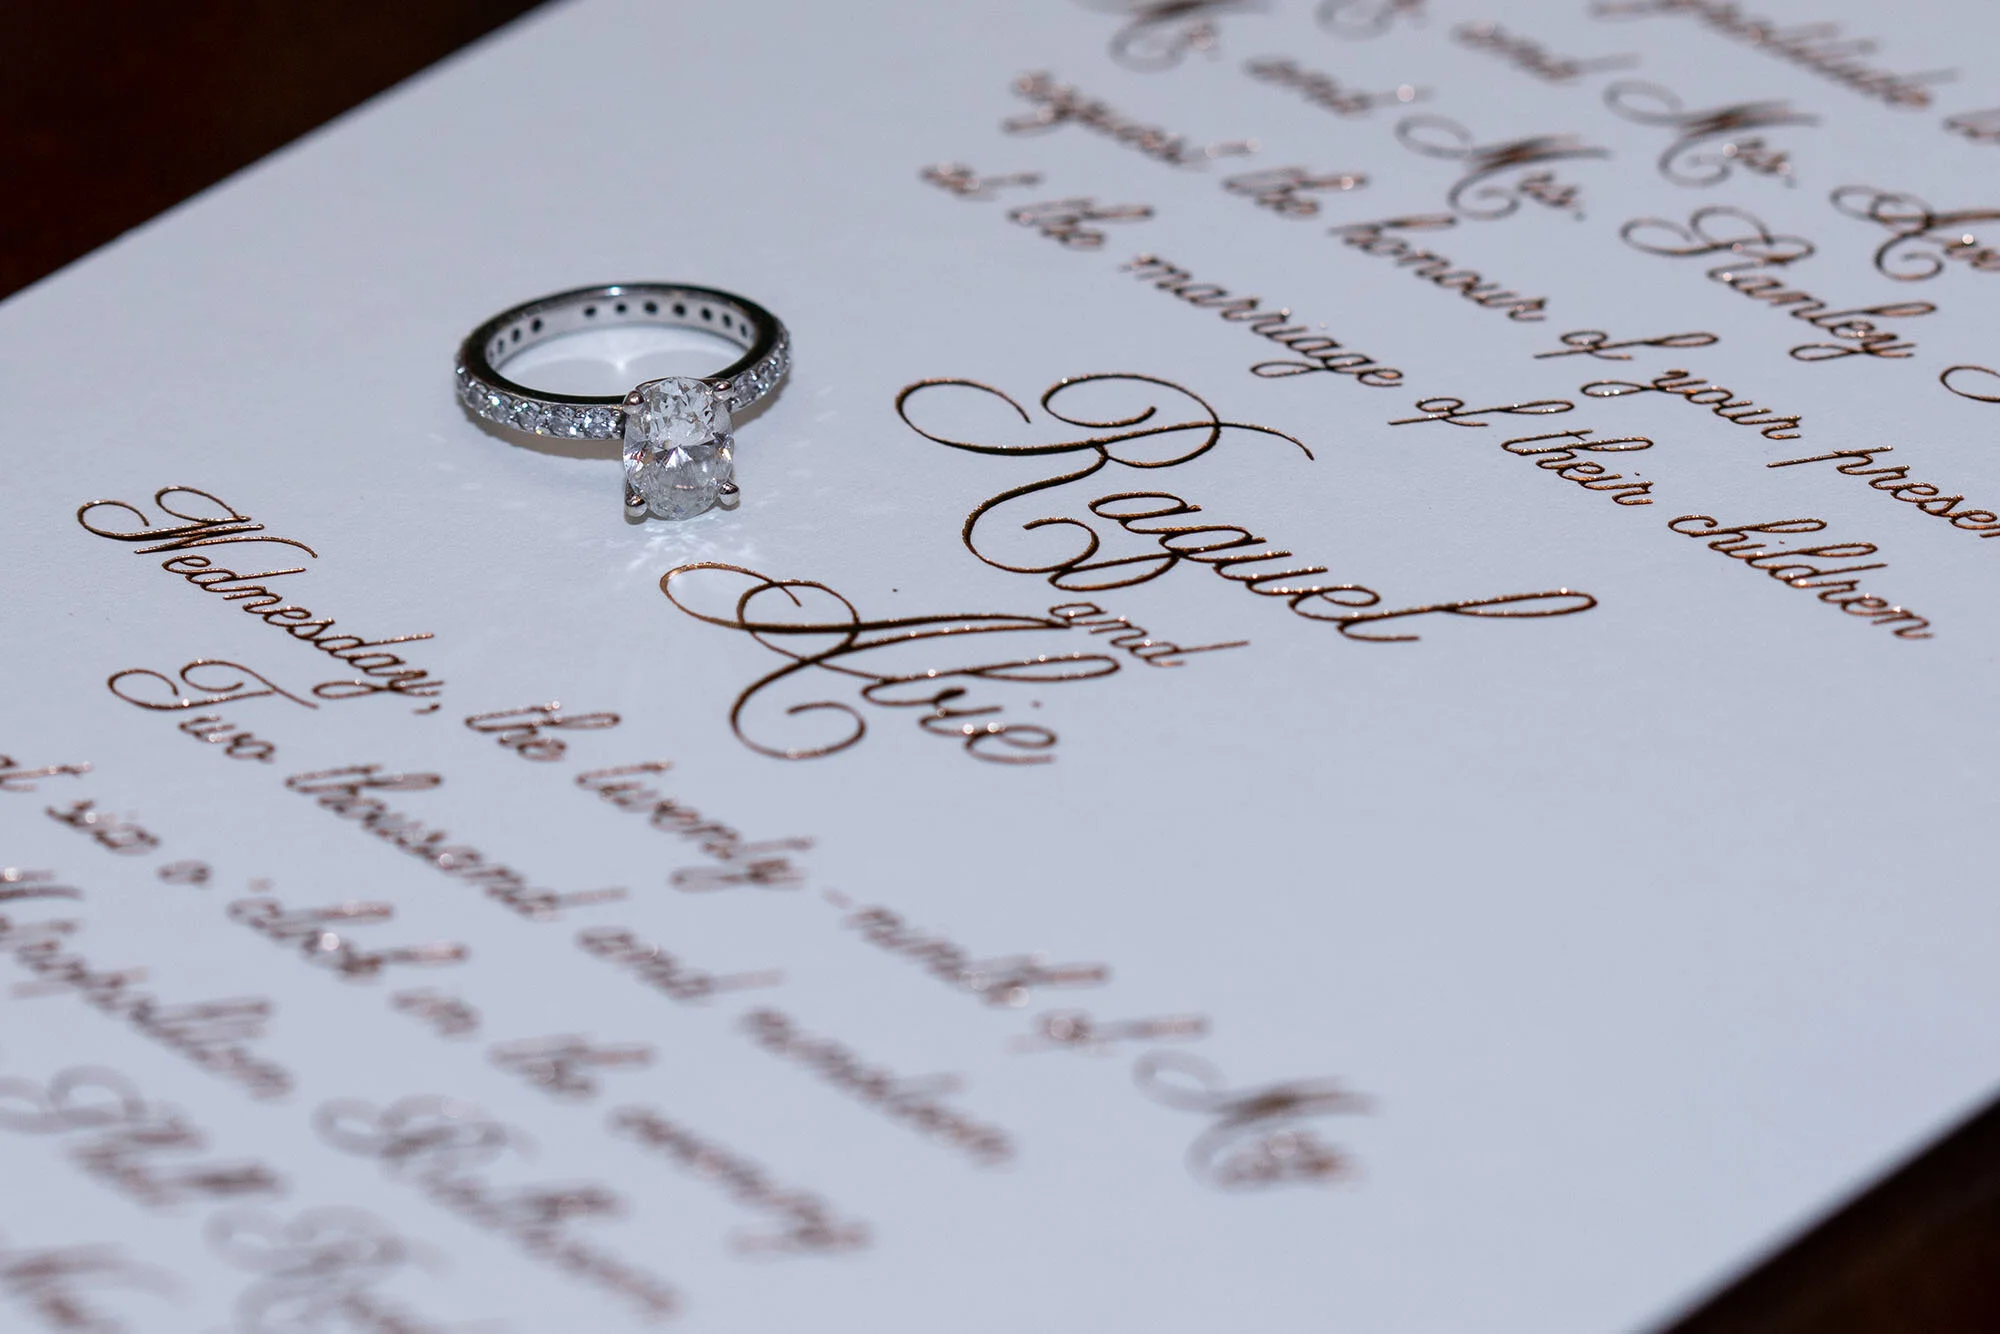 gratitude
and Mrs.
Mr. and Mrs. Stanley
request the honour of your presen
at the marriage of their children
Raquel
and
Abie
Wednesday, the twenty-ninth of May
Two thousand and nineteen
at six o'clock in the evening
Metropolitan